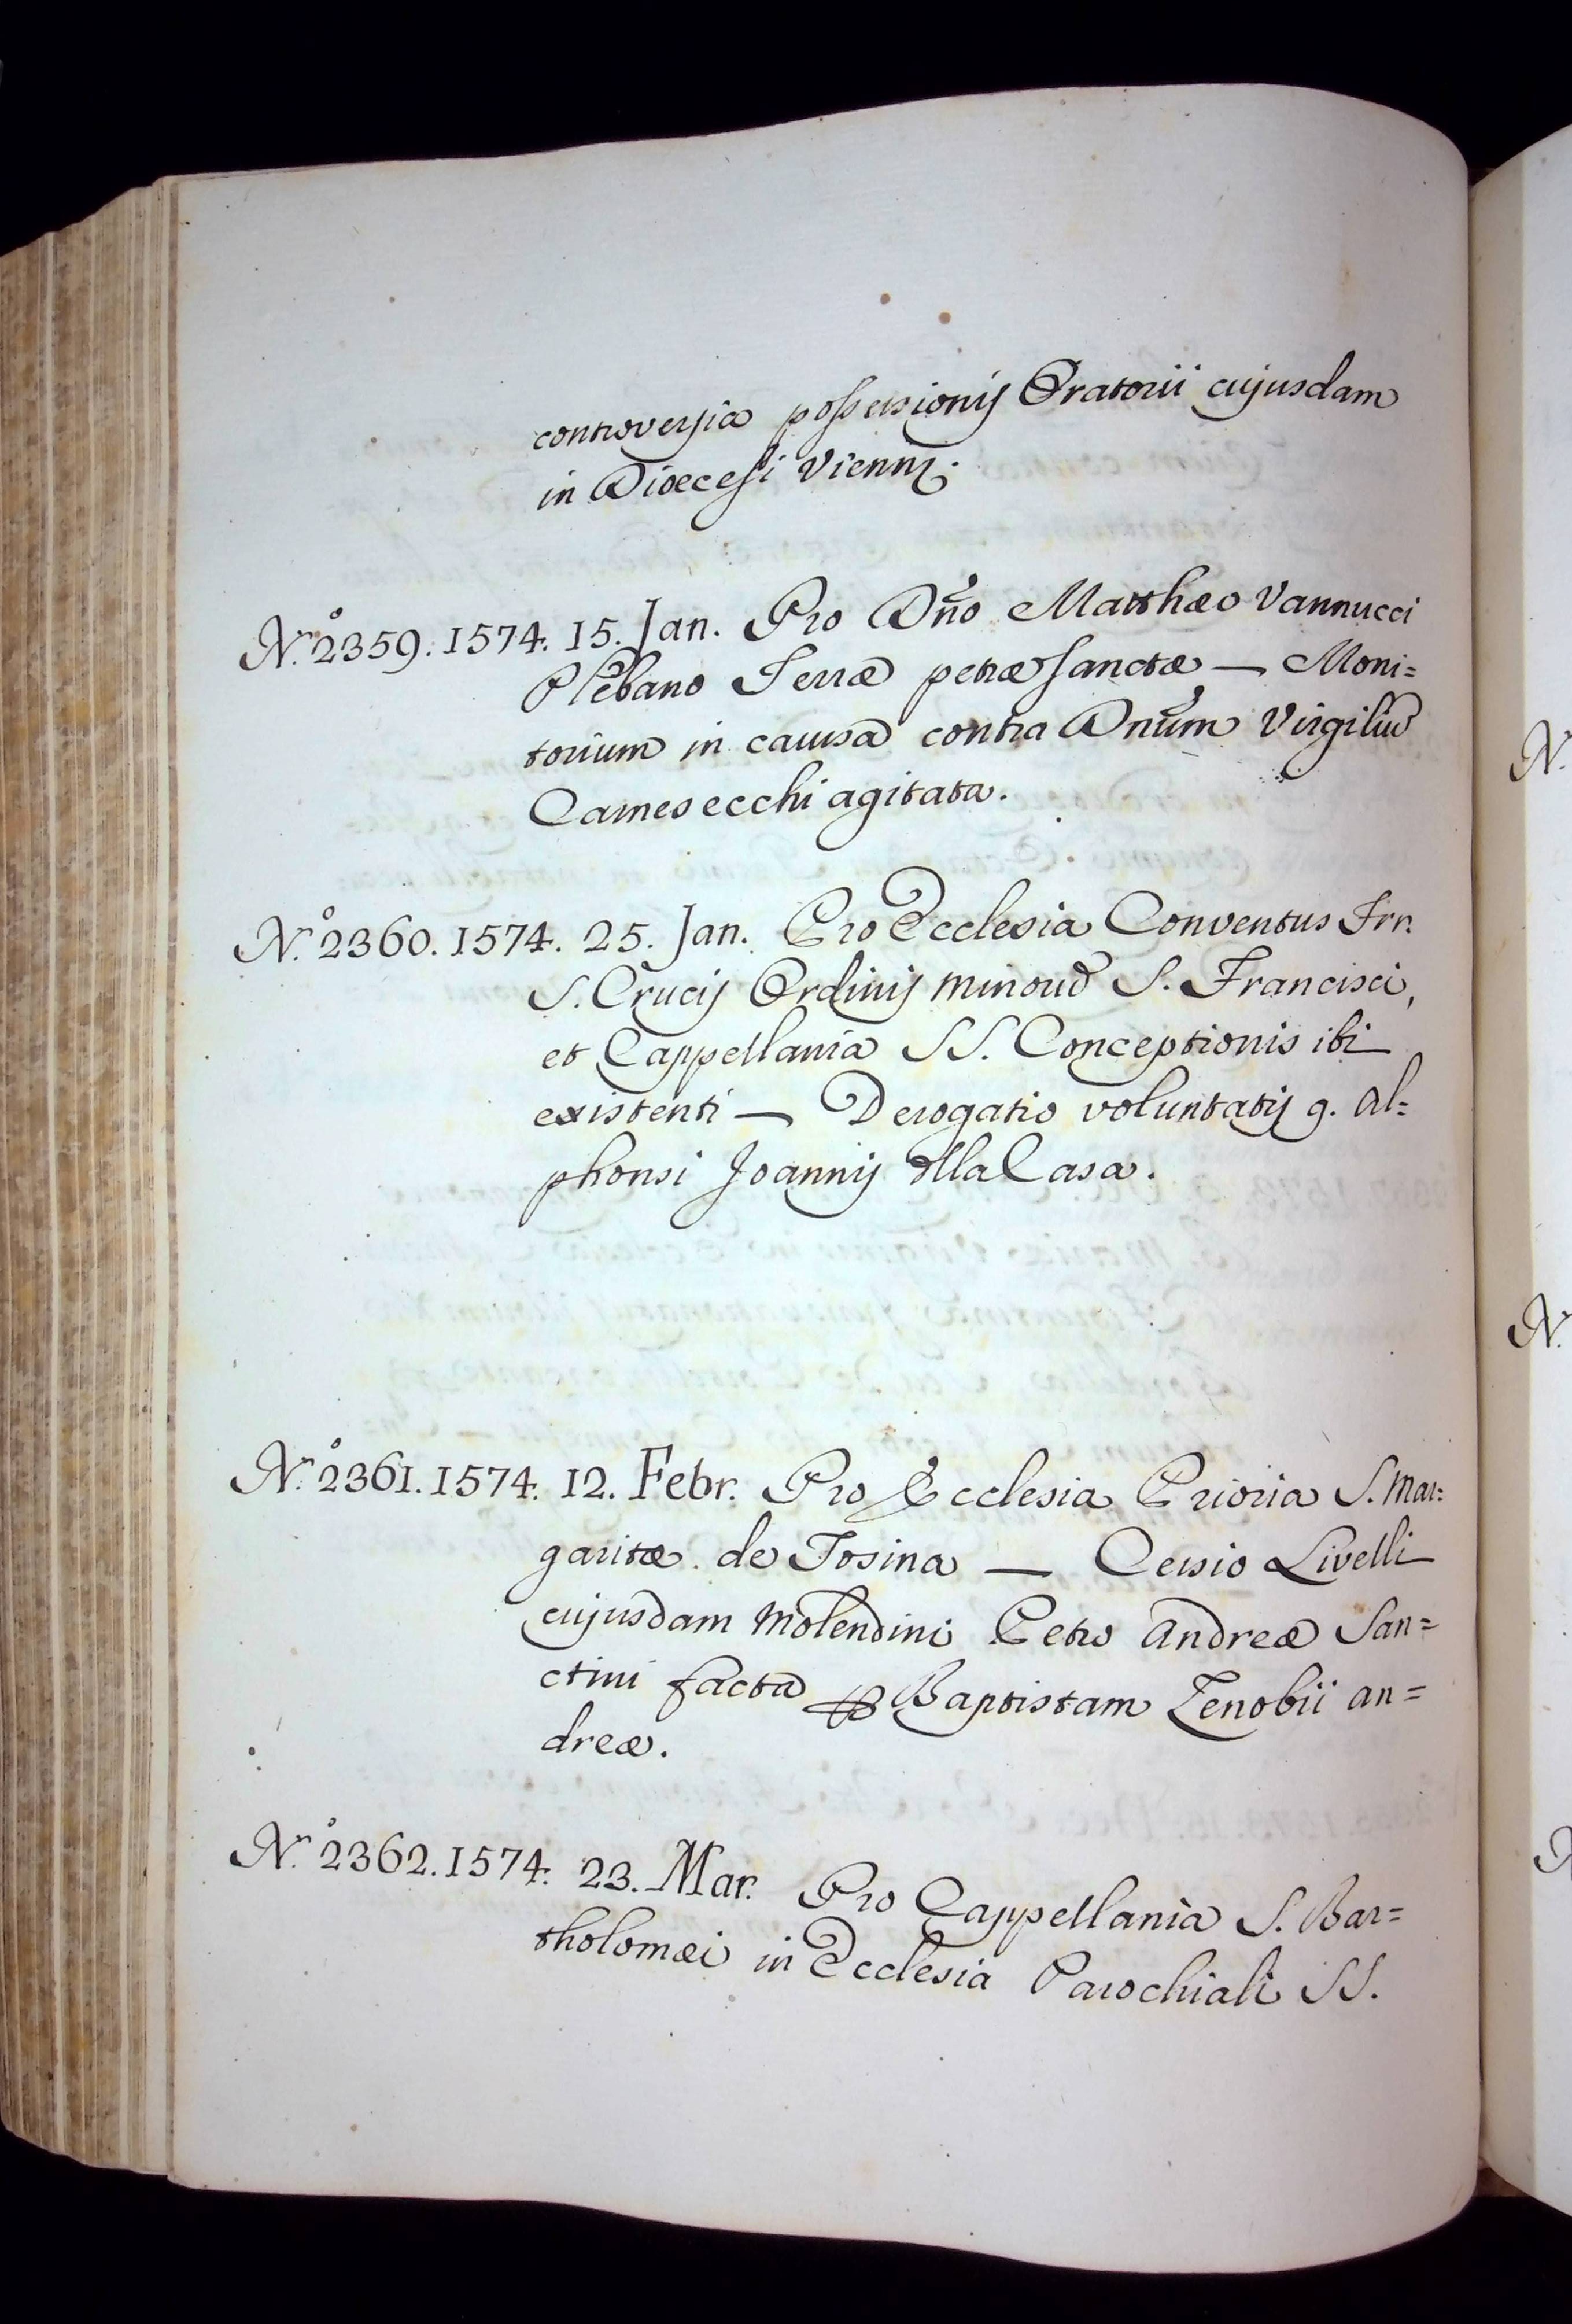 controversia possessionis Oratorii cujusdam
in Diœcesi Vienn.
N.º 2359. 1574. 15. Jan. Pro Dño Matthæo Vannucci
Plebano Terræ petræ sanctæ — Moni=
torium in causa contra Dnũm Virgiliũ
Carnesecchi agitata.
N.º 2360. 1574. 25. Jan. Pro Ecclesia Conventus Frr.
S. Crucis Ordinis minorũ S. Francisci,
et Cappellania SS. Conceptionis ibi
existenti — Derogatio voluntatis q. Al=
phonsi Joannis della Casa.
N.º 2361. 1574. 12. Febr. Pro Ecclesia Prioria S. Mar=
garitæ de Tosina — Cessio Livelli
cujusdam Molendini Petro Andreæ San=
ctini facta ꝑ Baptistam Zenobii an=
dreæ.
N.º 2362. 1574. 23. Mar. Pro Cappellania S. Bar=
tholomæi in Ecclesia Parochiali SS.
N.
N.
N